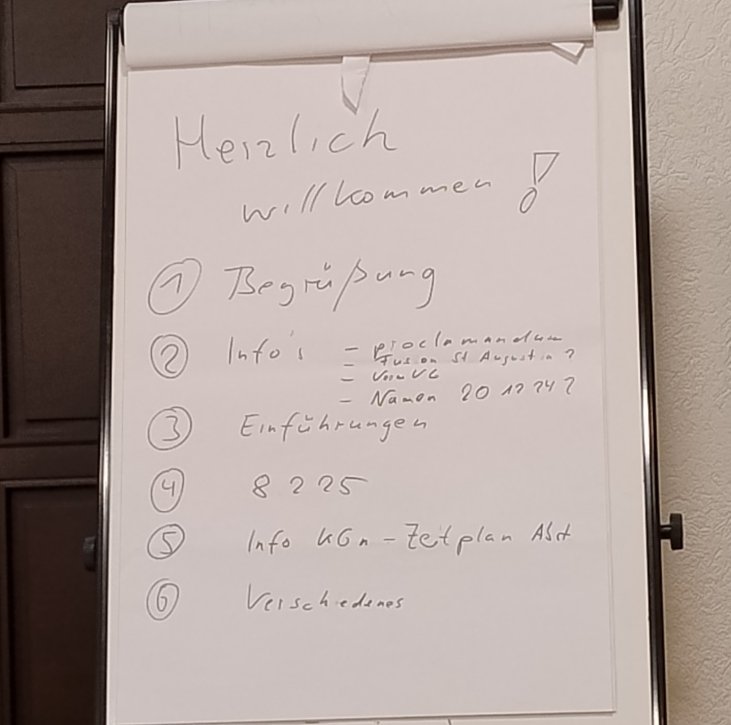 Herzlich
willkommen!
① Begrüßung
② Info's - proclamandum
- Fusion St Augustin?
- Vom VC
- Namen 20 12 24?
③ Einführungen
④ 8 2 25
⑤ Info KGn - Zeitplan
⑥ Verschiedenes